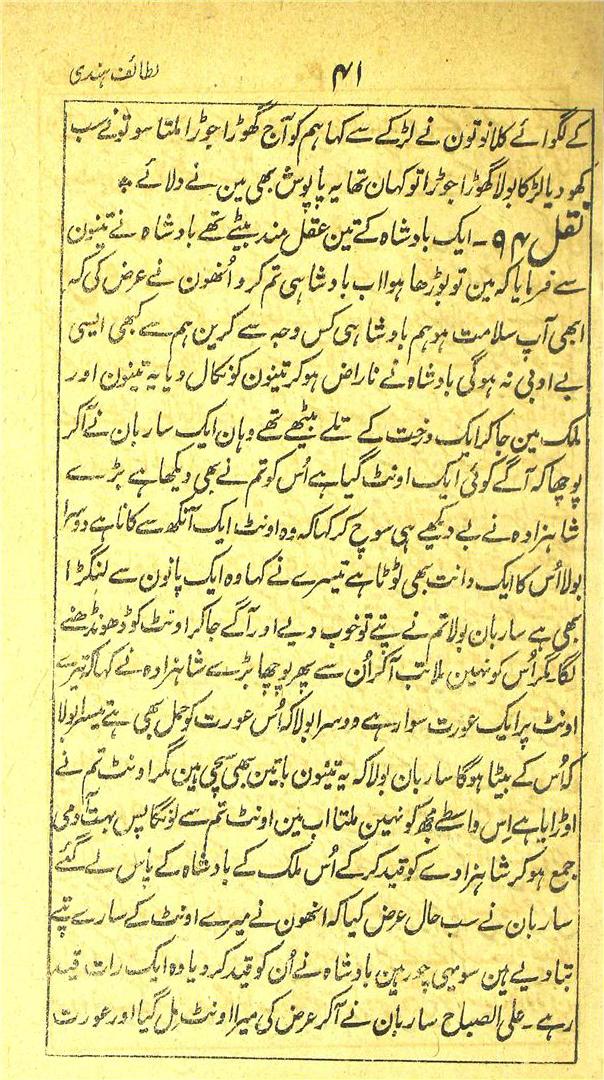 ۴۱ لطائف ہندی
کے لگوائے کلانوتون نے لڑکے سے کہا ہم کو آج گھوڑا جوڑا ملتا سو تونے سب
کھو دیا لڑکا بولا گھوڑا جوڑا تو کہان تھا یہ پاپوش بھی مین نے دلائے
نقل ۹۴ ـ ایک بادشاہ کے تین عقل مند بیٹے تھے بادشاہ نے تینون
سے فرمایا کہ مین تو بوڑھا ہوا اب بادشاہی تم کرو اُنھون نے عرض کی کہ
ابھی آپ سلامت ہو ہم بادشاہی کس وجہ سے کرین ہم سے کبھی ایسی
بے ادبی نہ ہوگی بادشاہ نے ناراض ہو کر تینون کو نکال دیا یہ تینون اور
ملک مین جا کر ایک درخت کے تلے بیٹھے تھے وہان ایک ساربان نے آکر
پوچھا کہ آگے کوئی ایک اونٹ گیا ہے اُس کو تم نے بھی دیکھا ہے بڑے
شاہزادہ نے بے دیکھے ہی سوچ کر کہا کہ وہ اونٹ ایک آنکھ سے کانا ہے دوسرا
بولا اُس کا ایک دانت بھی ٹوٹا ہے تیسرے نے کہا وہ ایک پانون سے لنگڑا
بھی ہے ساربان بولا تم نے پتے تو خوب دیے اور آگے جا کر اونٹ کو ڈھونڈھنے
لگا مگر اُس کو نہین ملا تب آکر اُن سے پھر پوچھا بڑے شاہزادہ نے کہا کہ تیرے
اونٹ پر ایک عورت سوار ہے دوسرا بولا کہ اُس عورت کو حمل بھی ہے تیسرا بولا
کہ اُس کے بیٹا ہوگا ساربان بولا کہ یہ تینون باتین بھی سچی ہین مگر اونٹ تم نے
اوڑایا ہے اِس واسطے مجھ کو نہین ملتا اب مین اونٹ تم سے لونگا پس بہت آدمی
جمع ہو کر شاہزادے کو قید کر کے اُس ملک کے بادشاہ کے پاس لے گئے
ساربان نے سب حال عرض کیا کہ انھون نے میرے اونٹ کے سارے پتے
بتا دیے ہین سو یہی چور ہین بادشاہ نے اُن کو قید کر دیا وہ ایک رات قید
رہے ـ علی الصباح ساربان نے آکر عرض کی میرا اونٹ مل گیا اور عورت